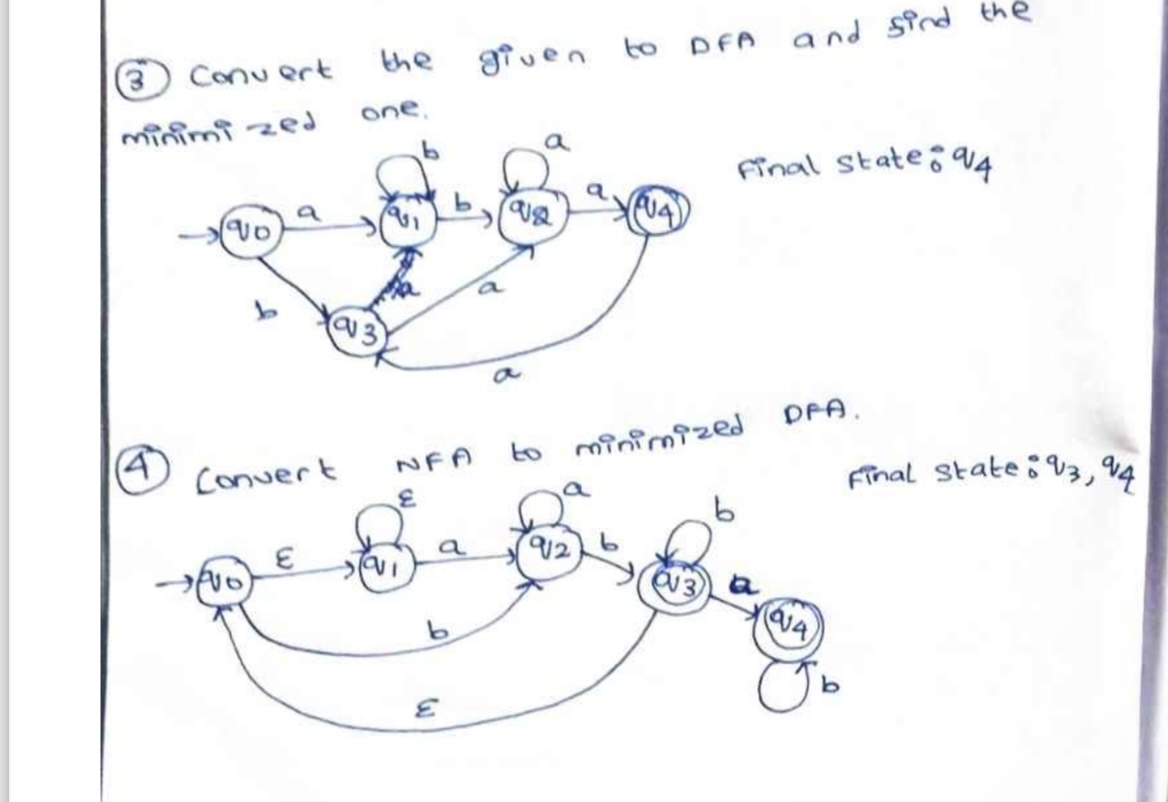 ③ Convert the given to DFA and find the
minimized one.
Final state: q4
b
a
q0
a
q1
b
q2
a
q4
b
a
q3
a
④ Convert NFA to minimized DFA.
Final state: q3, q4
ε
a
b
q0
ε
q1
a
q2
b
q3
a
q4
b
b
ε